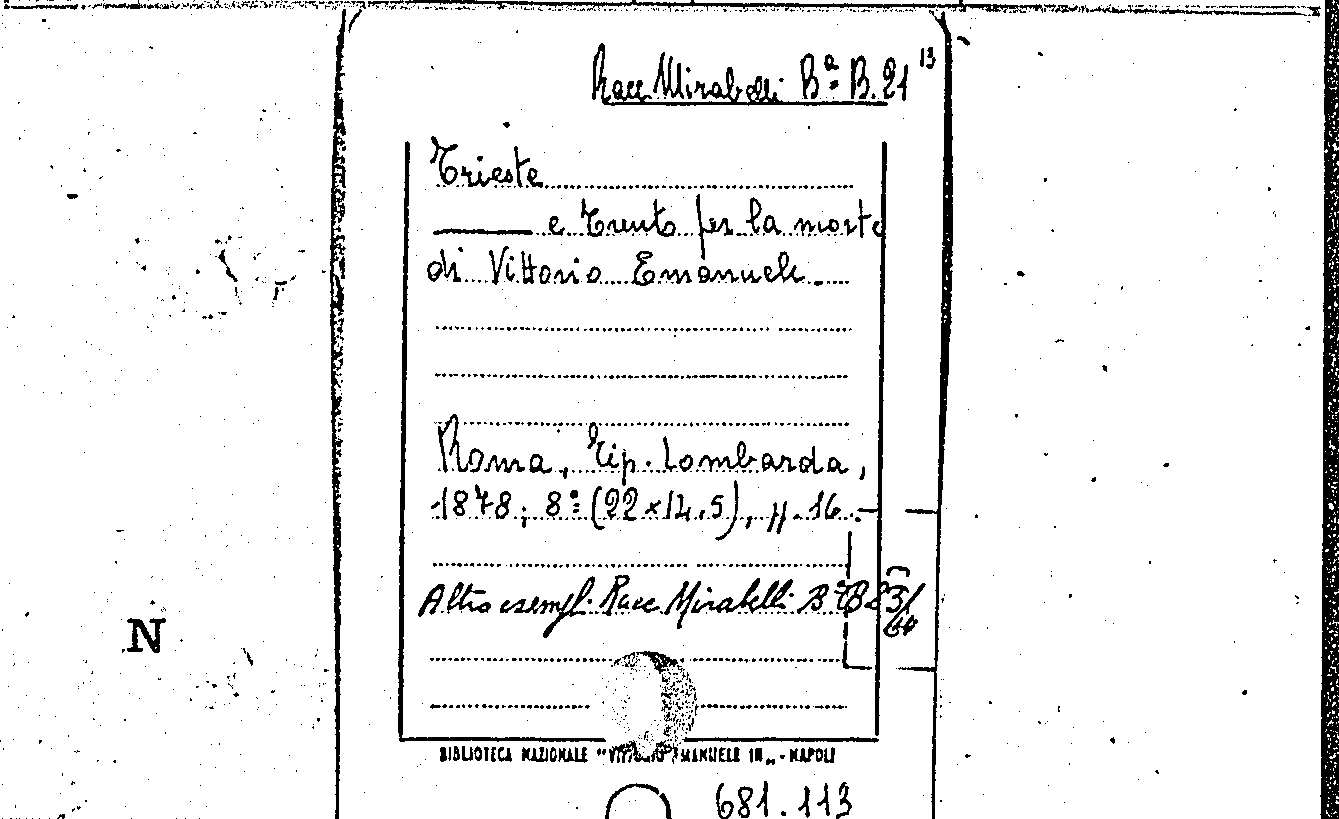 Racc. Mirabelli Bª B. 21 13
Trieste
——— e Trento per la morte
di Vittorio Emanuele.
Roma, Tip. Lombarda,
1878; 8º (22 x 14,5), pp. 16.
Altro esempl. Racc Mirabelli Bª B 23/
N
BIBLIOTECA NAZIONALE "VITTORIO EMANUELE III„ - NAPOLI
681.113